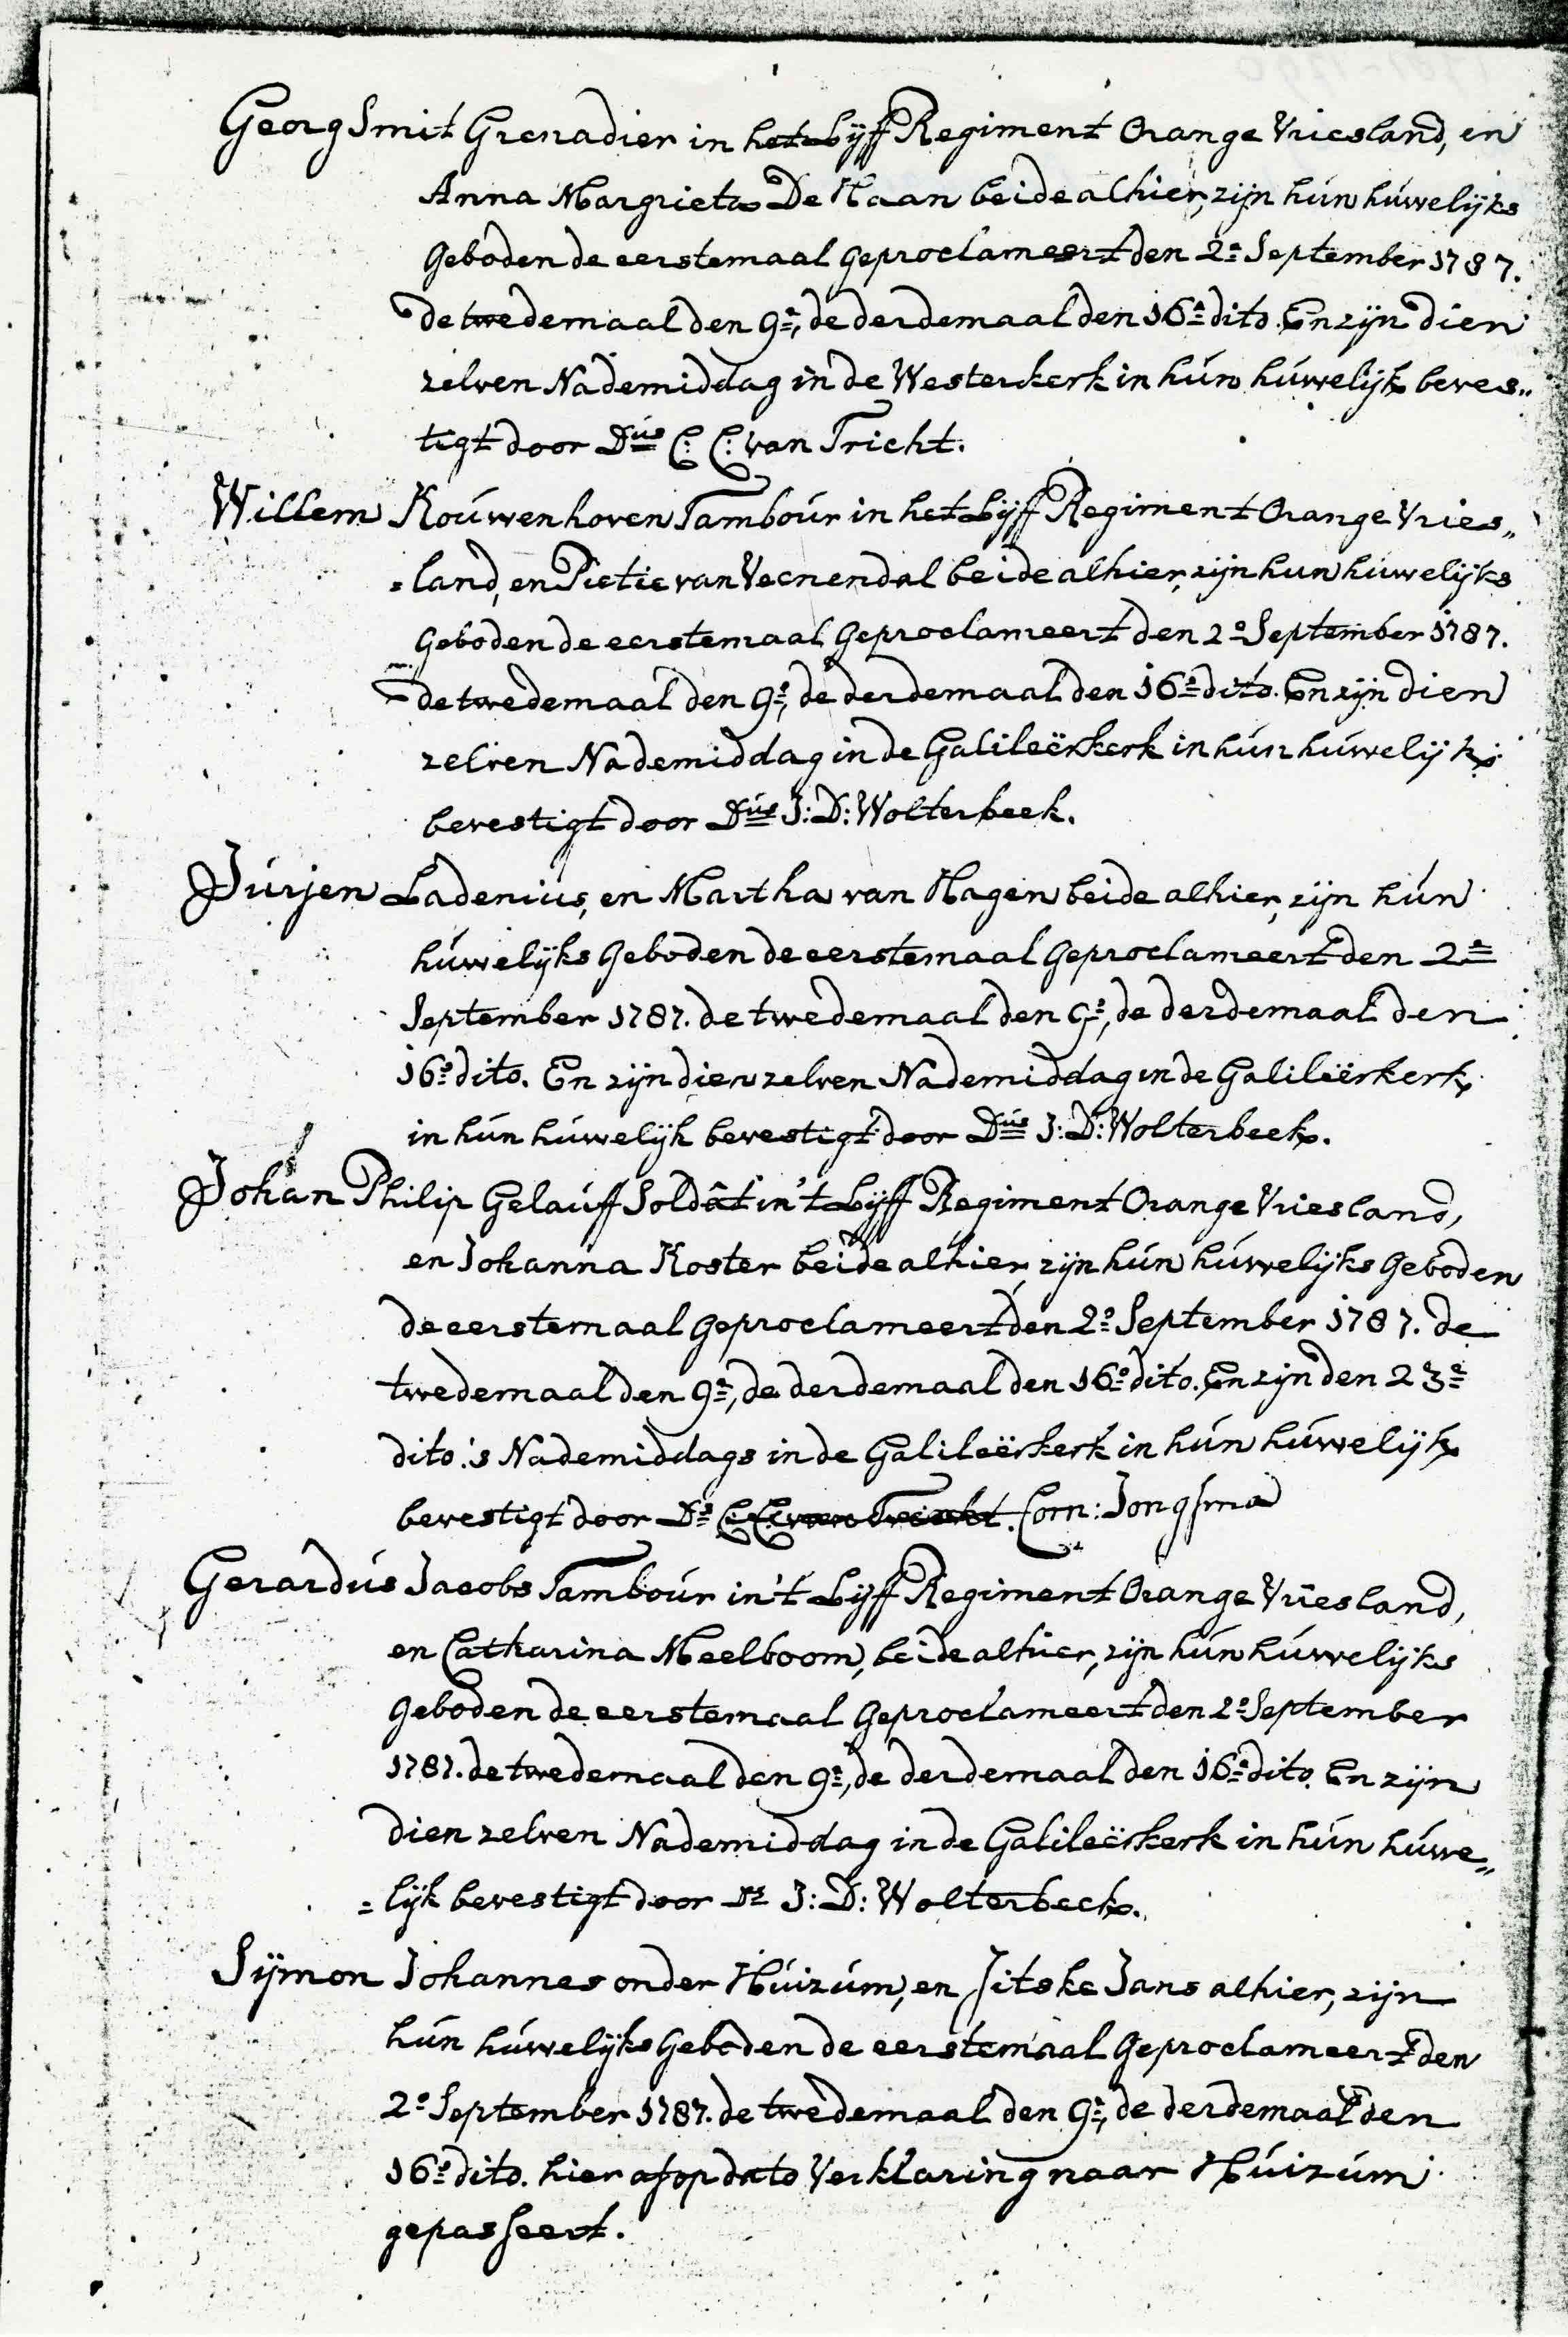 Georg Smit Grenadier in het Lijff Regiment Orange Vriesland, en
Anna Margrieta De Haan beide alhier, zijn hún húwelijks
Geboden de eerstemaal Geproclameert den 2e September 1787.
de twedemaal den 9e, de derdemaal den 16e dito. En zijn dien
zelven Nademiddag in de Westerkerk in hún húwelijk beves„
tigt door Dús C: C: van Tricht.
Willem Koúwenhoven Tamboúr in het Lijff Regiment Orange Vries„
=land, en Pietie van Veenendal beide alhier, zijn hun húwelijks
Geboden de eerstemaal Geproclameert den 2e September 1787.
de twedemaal den 9e, de derdemaal den 16e dito. En zijn dien
zelven Nademiddag in de Galileërkerk in hún húwelijk
bevestigt door Dús J: D: Wolterbeek.
Júrjen Ladeniús, en Martha van Hagen beide alhier, zijn hún
húwelijks Geboden de eerstemaal Geproclameert den 2e
September 1787. de twedemaal den 9e, de derdemaal den
16e dito. En zijn dien zelven Nademiddag in de Galileërkerk
in hún húwelijk bevestigt door Dús J: D: Wolterbeek.
Johan Philip Gelaúff Soldât in 't Lijff Regiment Orange Vriesland,
en Johanna Koster beide alhier, zijn hún húwelijks Geboden
de eerstemaal Geproclameert den 2e September 1787. de
twedemaal den 9e, de derdemaal den 16e dito. En zijn den 23e
dito 's Nademiddags in de Galileërkerk in hún húwelijk
bevestigt door Ds C: C: van Tricht. Corn: Jongsma
Gerardús Jacobs Tamboúr in 't Lijff Regiment Orange Vriesland,
en Catharina Meelboom, beide alhier, zijn hún húwelijks
Geboden de eerstemaal Geproclameert den 2e September
1787. de twedemaal den 9e, de derdemaal den 16e dito. En zijn
dien zelven Nademiddag in de Galileërkerk in hún húwe„
=lijk bevestigt door Ds J: D: Wolterbeek.
Sijmon Johannes onder Húizúm, en Jitske Jans alhier, zijn
hún húwelijks Geboden de eerstemaal Geproclameert den
2e September 1787. de twedemaal den 9e, de derdemaal den
16e dito. hier af op dato Verklaring naar Húizúm
gepasseert.